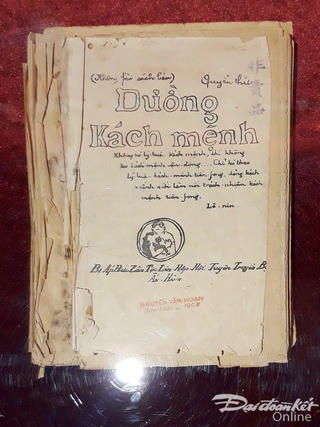 (Không fải sách bán) Quyển thứ
非賣品
Đường
Kách mệnh
Không có lý luận kách mệnh, thì không
có kách mệnh vận động... Chỉ có theo
lý luận kách mệnh tiền fong, đảng kách
mệnh mới làm nổi trách nhiệm kách
mệnh tiền fong.
Lê-nin
Bị Áp Bức Zân Tộc Liên Hợp Hội Tuyên Truyền Bộ
NGUYỄN VĂN HOAN
Đại đoàn Kết
Online